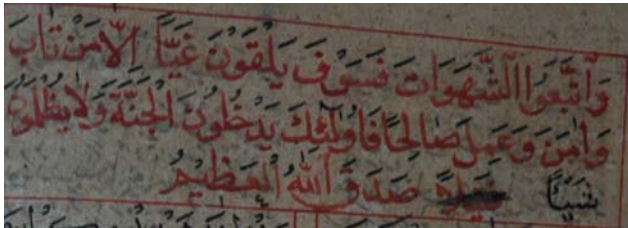 وَٱتَّبَعُوا ٱلشَّهَوَاتِ فَسَوْفَ يَلْقَوْنَ غَيًّا إِلَّا مَنْ تَابَ
وَاٰمَنَ وَعَمِلَ صَالِحًا فَاُولٰٓئِكَ يَدْخُلُونَ الْجَنَّةَ وَلَا يُظْلَمُونَ
شَيْئًا صَدَقَ ٱللّٰهُ الْعَظِيمُ